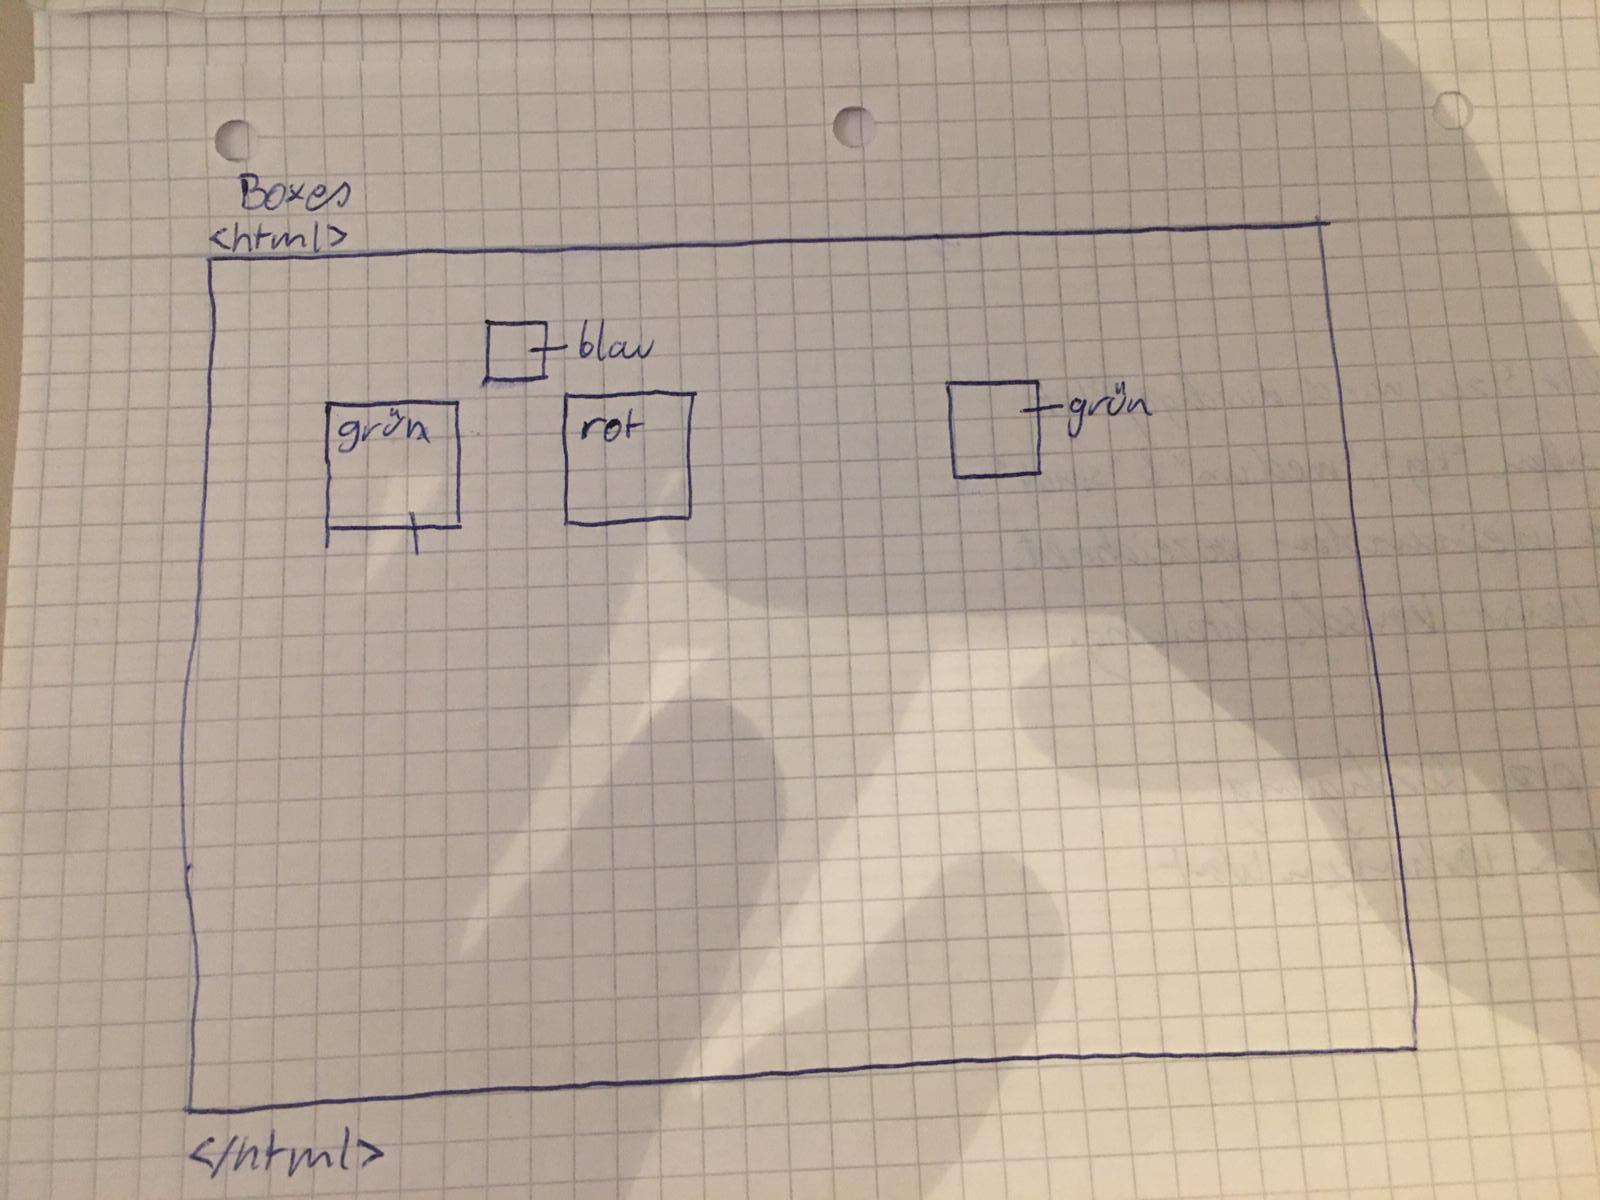 Boxes
<html>
blau
grün
rot
grün
</html>